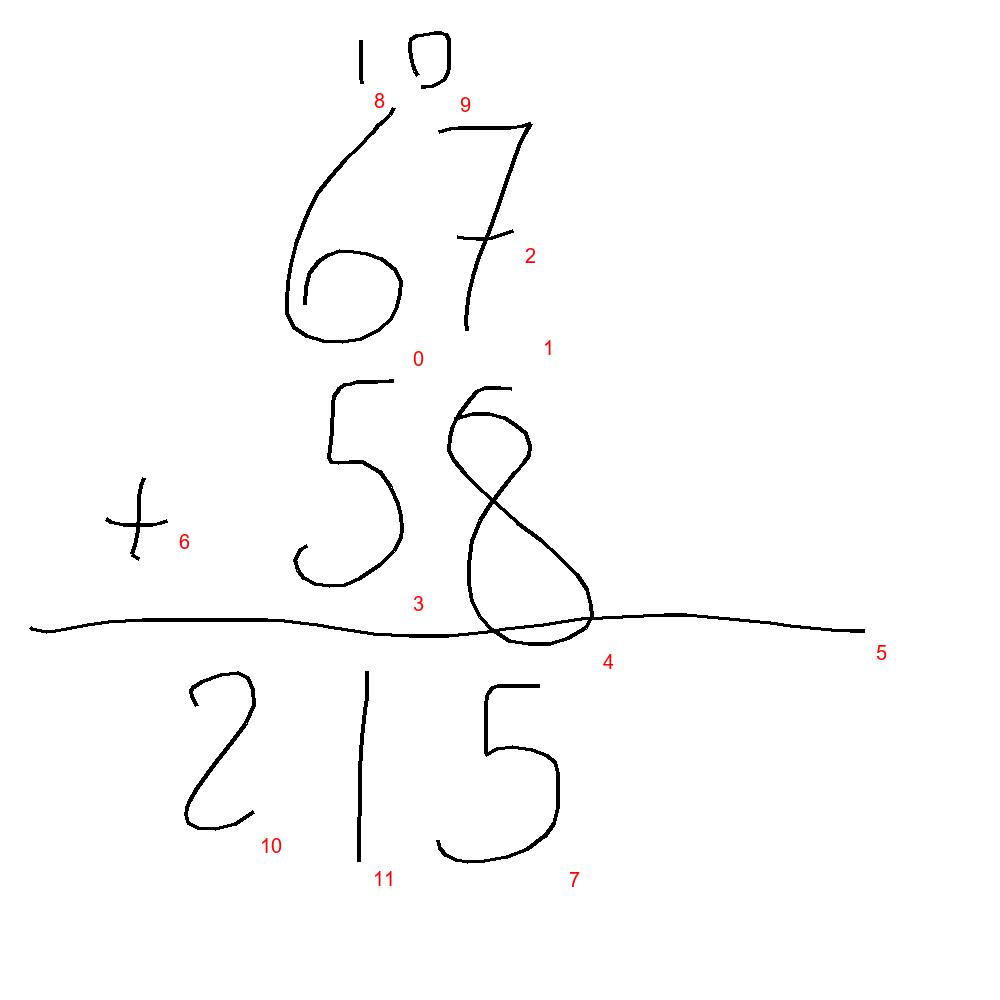 10
8 9
67
2
0 1
58
+ 6
3
4 5
215
10 11 7